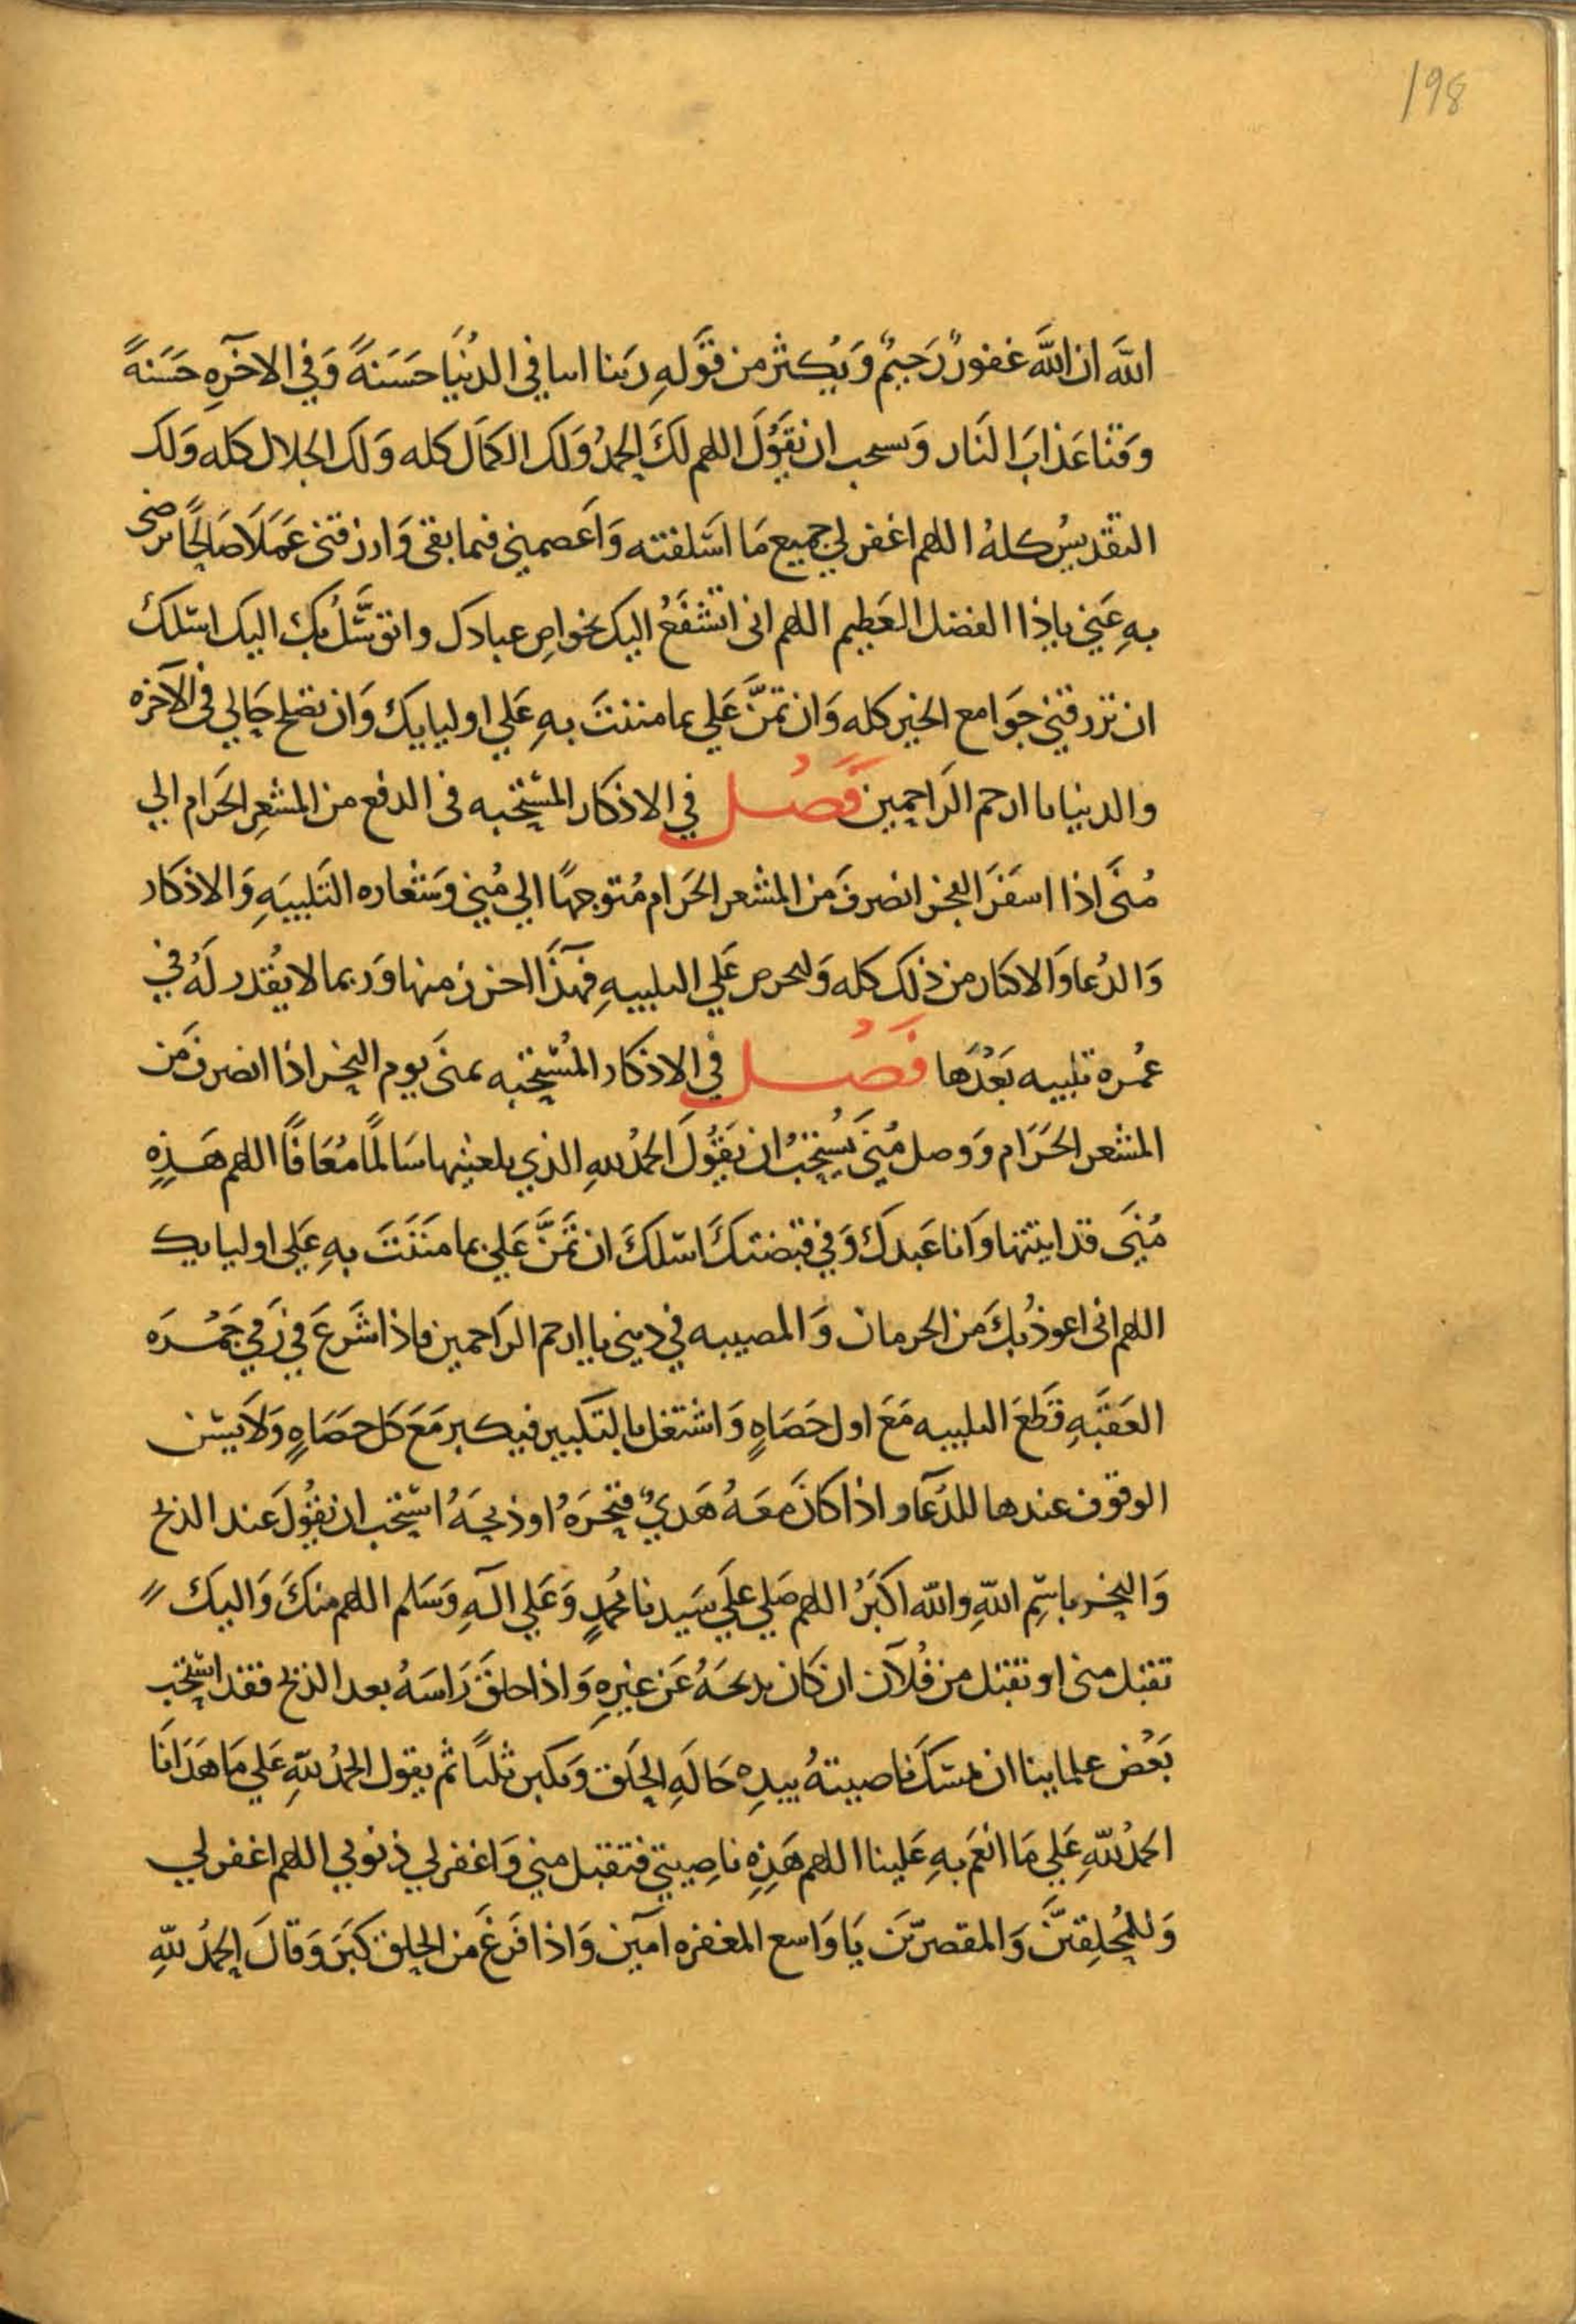 198
اللَّهَ ان اللَّهَ غفورٌ رَحيمٌ وَيُكثر من قوَلهِ رَبنا اتنا في الدُنيَا حَسَنةً وَفي الاخَرِه حَسَنةً
وَقنا عَذابَ النَار وَيستحب ان يقوُلَ اللهم لكَ الحمدُ وَلك الكمَال كله وَلك الجلال كله وَلك
التقديسُ كلهُ اللهم اغفر لي جميع مَا اسَلفته وَاعَصمني فيما بقي وَارزقني عَمَلاَ صَالحًا ترضى
بهِ عَني ياذا الفضل العَظيم اللهم انى اتشفَعُ اليك بخواص عبادك واتوسَّلُ بك اليك اسئلك
ان ترزقني جوَامع الخير كله وَان تمنَّ عَلي بما مننتَ بهِ عَلي اوليايك وَان تصلح حَالي فى الآخره
والدنيا يا ارحم الرَاحمين فَصَل في الاذكار المسُتحبه فى الدفع من المشعِر الحَرام الي
مُنًى اذا اسفَرَ الفجر انصرفَ من المشعر الحَرام مُتوجهًا الي مُني وَشعاره التَلبيَهِ وَالاذكار
وَالدُعا وَالاكثار من ذلك كله وَليحرص عَلي التلبيهِ فهذَا اخر زمنها وَربما لا يقُدر لهُ في
عُمره تلبيه بَعْدَها فَصُل في الاذكار المُستحبه بمنَى يوم النحر اذا انصرفَ من
المشعر الحَرَام وَوصل مُنَى يسُتحبُ ان يَقوُلَ الحمدُ للهِ الذي بلغنيها سَالمًا مُعَافًا اللهم هَذِهِ
مُنَى قد اتيتها وَانا عَبدكَ وَفي قبضتكَ اسئلكَ ان تمَنَّ عَلي بما مَننَتَ بهِ عَلي اوليايك
اللهم انى اعوذُ بكَ من الحرمان وَالمصيبه في ديني يا ارحم الرَاحمين فاذا شَرعَ في رَمي جَمُرَه
العَقبَهِ قطَعَ التلبيه مَعَ اول حَصَاهٍ وَاشتغل بالتكبير فيكبر مَعَ كل حصَاهٍ وَلاَ يسُن
الوقوف عندها للدُعَا واذا كانَ معَهُ هَديٌ فنحَرَهُ اوذبحَهُ اسُتحب ان يقوُلَ عند الذبح
وَالنحر باسِم اللهِ والله اكبَرُ اللهم صَلي علَي سَيدنا محُمدٍ وَعَلي الهِ وَسَلم اللهم منكَ وَاليك
تقبل منى او تقبل من فُلاَن ان كَان يذبحَهُ عَن غيرِهِ وَاذا حلقَ رَاسَهُ بعد الذبح فقد اسُتحب
بَعْض علماينا ان يمسَك ناصيتهُ بيدِه حَالَهِ الحَلق وَيكبر ثلثاً ثم يقول الحمدُ للهِ عَلي مَا هَدَانَا
الحمدُ للهِ عَلي مَا انعَم بهِ عَلينا اللهم هَذِهِ ناصِيتي فتقبل مني وَاغفر لي ذنوبي اللهم اغفر لي
وَللمُحلِقينَ وَالمقصرّينَ يَا وَاسع المغفره امَين وَاذا فَرغَ من الحلق كبَرَ وَقالَ الحمدُ للهِ